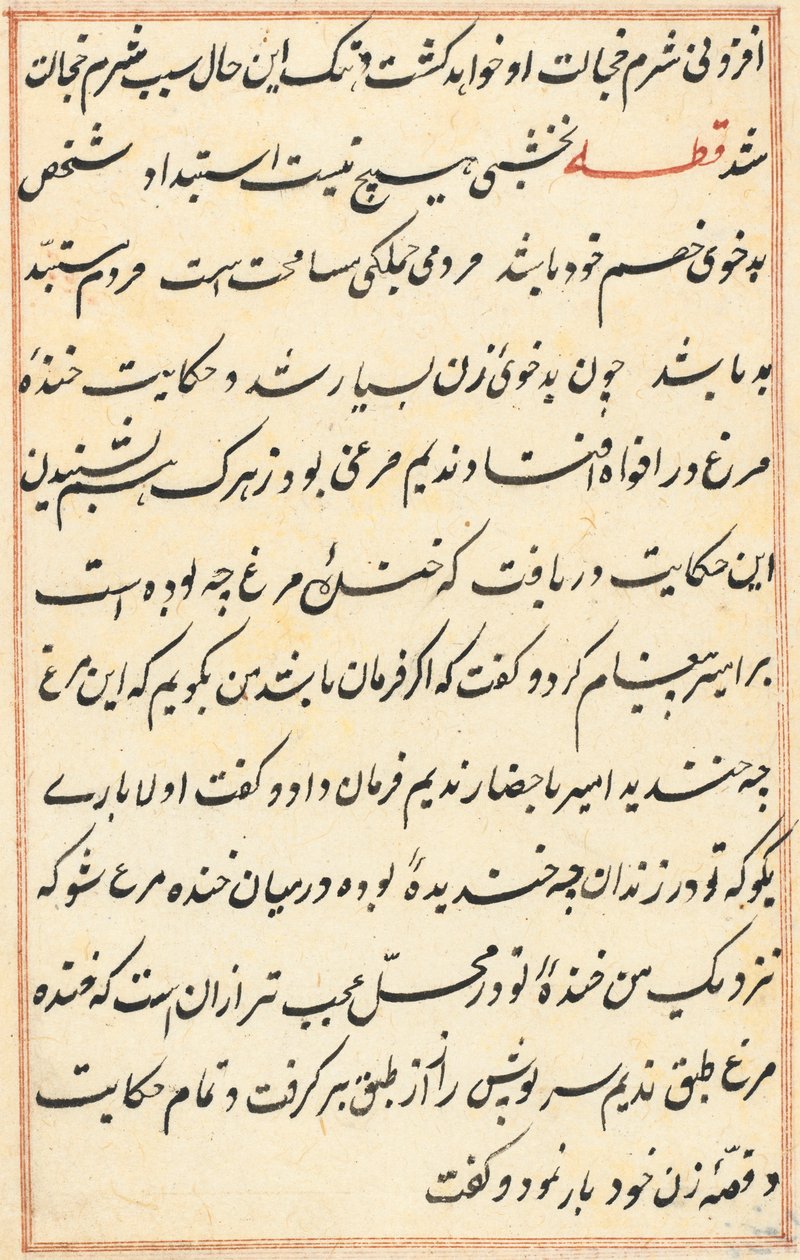 افزونی شرم خجالت او خواهد کشت و تنگ این حال سبب شرم خجالت
شد قطعه نخشبی هیچ نیست استبداد شخص
بدخوی خصم خود باشد مردمی جملگی مسامحت است مردم مستبدّ
بد باشد چون بدخوئ زن بسیار شد و حکایت خندهٔ
مرغ در افواه افتاد ندیم مرغی بود زیرک هم بشنیدن
این حکایت دریافت که خندهٔ مرغ چه بوده است
بر امیر پیغام کرد و گفت که اگر فرمان باشد من بگویم که این مرغ
چه خندید امیر باحضار ندیم فرمان داد و گفت اولا بارے
بگو که تو در زندان چه خندیدهٔ بوده درمیان خنده مرع شو که
نزدیک من خندهٔ تو در محلّ عجب تر ازان است که خنده
مرغ طبق ندیم سرپوش راز از طبق برگرفت و تمام حکایت
و قصّهٔ زن خود باز نمود و گفت